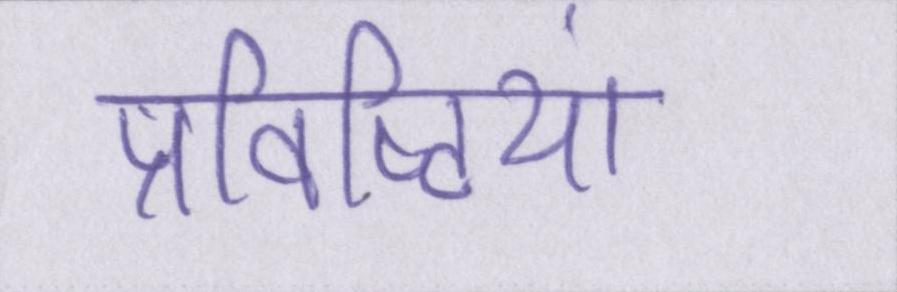 प्रविष्टियां